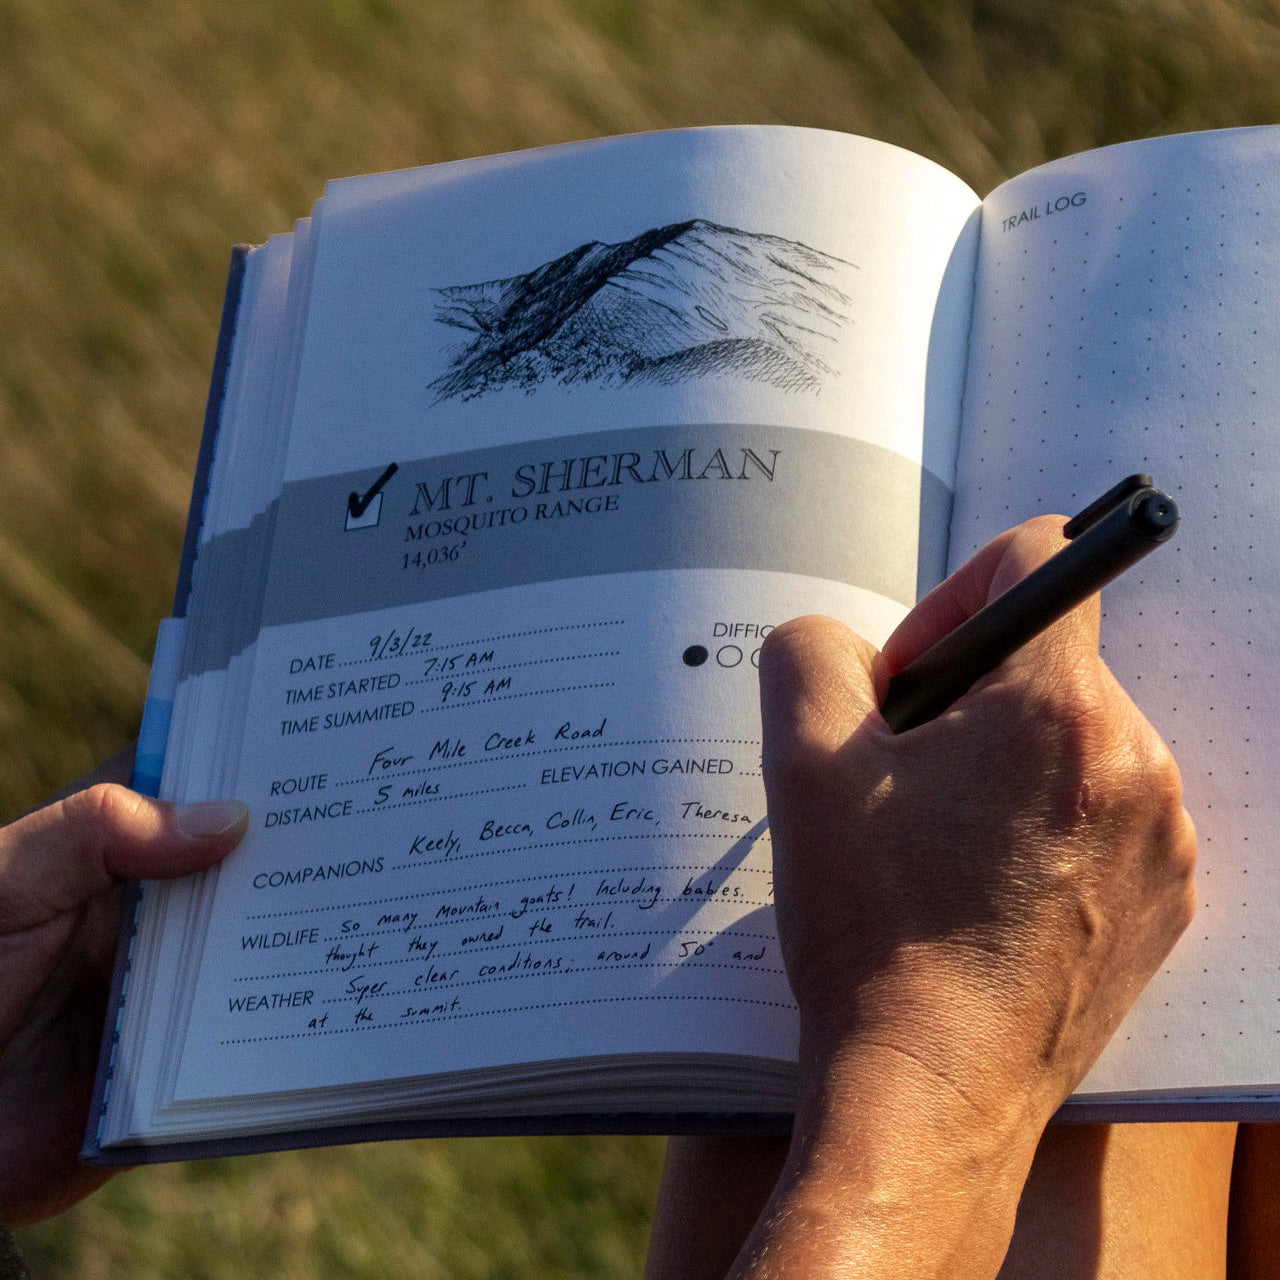 TRAIL LOG
MT. SHERMAN
MOSQUITO RANGE
14,036'
DATE 9/3/22
TIME STARTED 7:15 AM
TIME SUMMITED 9:15 AM
ROUTE Four Mile Creek Road
DISTANCE 5 miles ELEVATION GAINED
COMPANIONS Keely, Becca, Collin, Eric, Theresa
WILDLIFE So many Mountain goats! Including babies.
thought they owned the trail.
WEATHER Super clear conditions; around 50° and
at the summit.